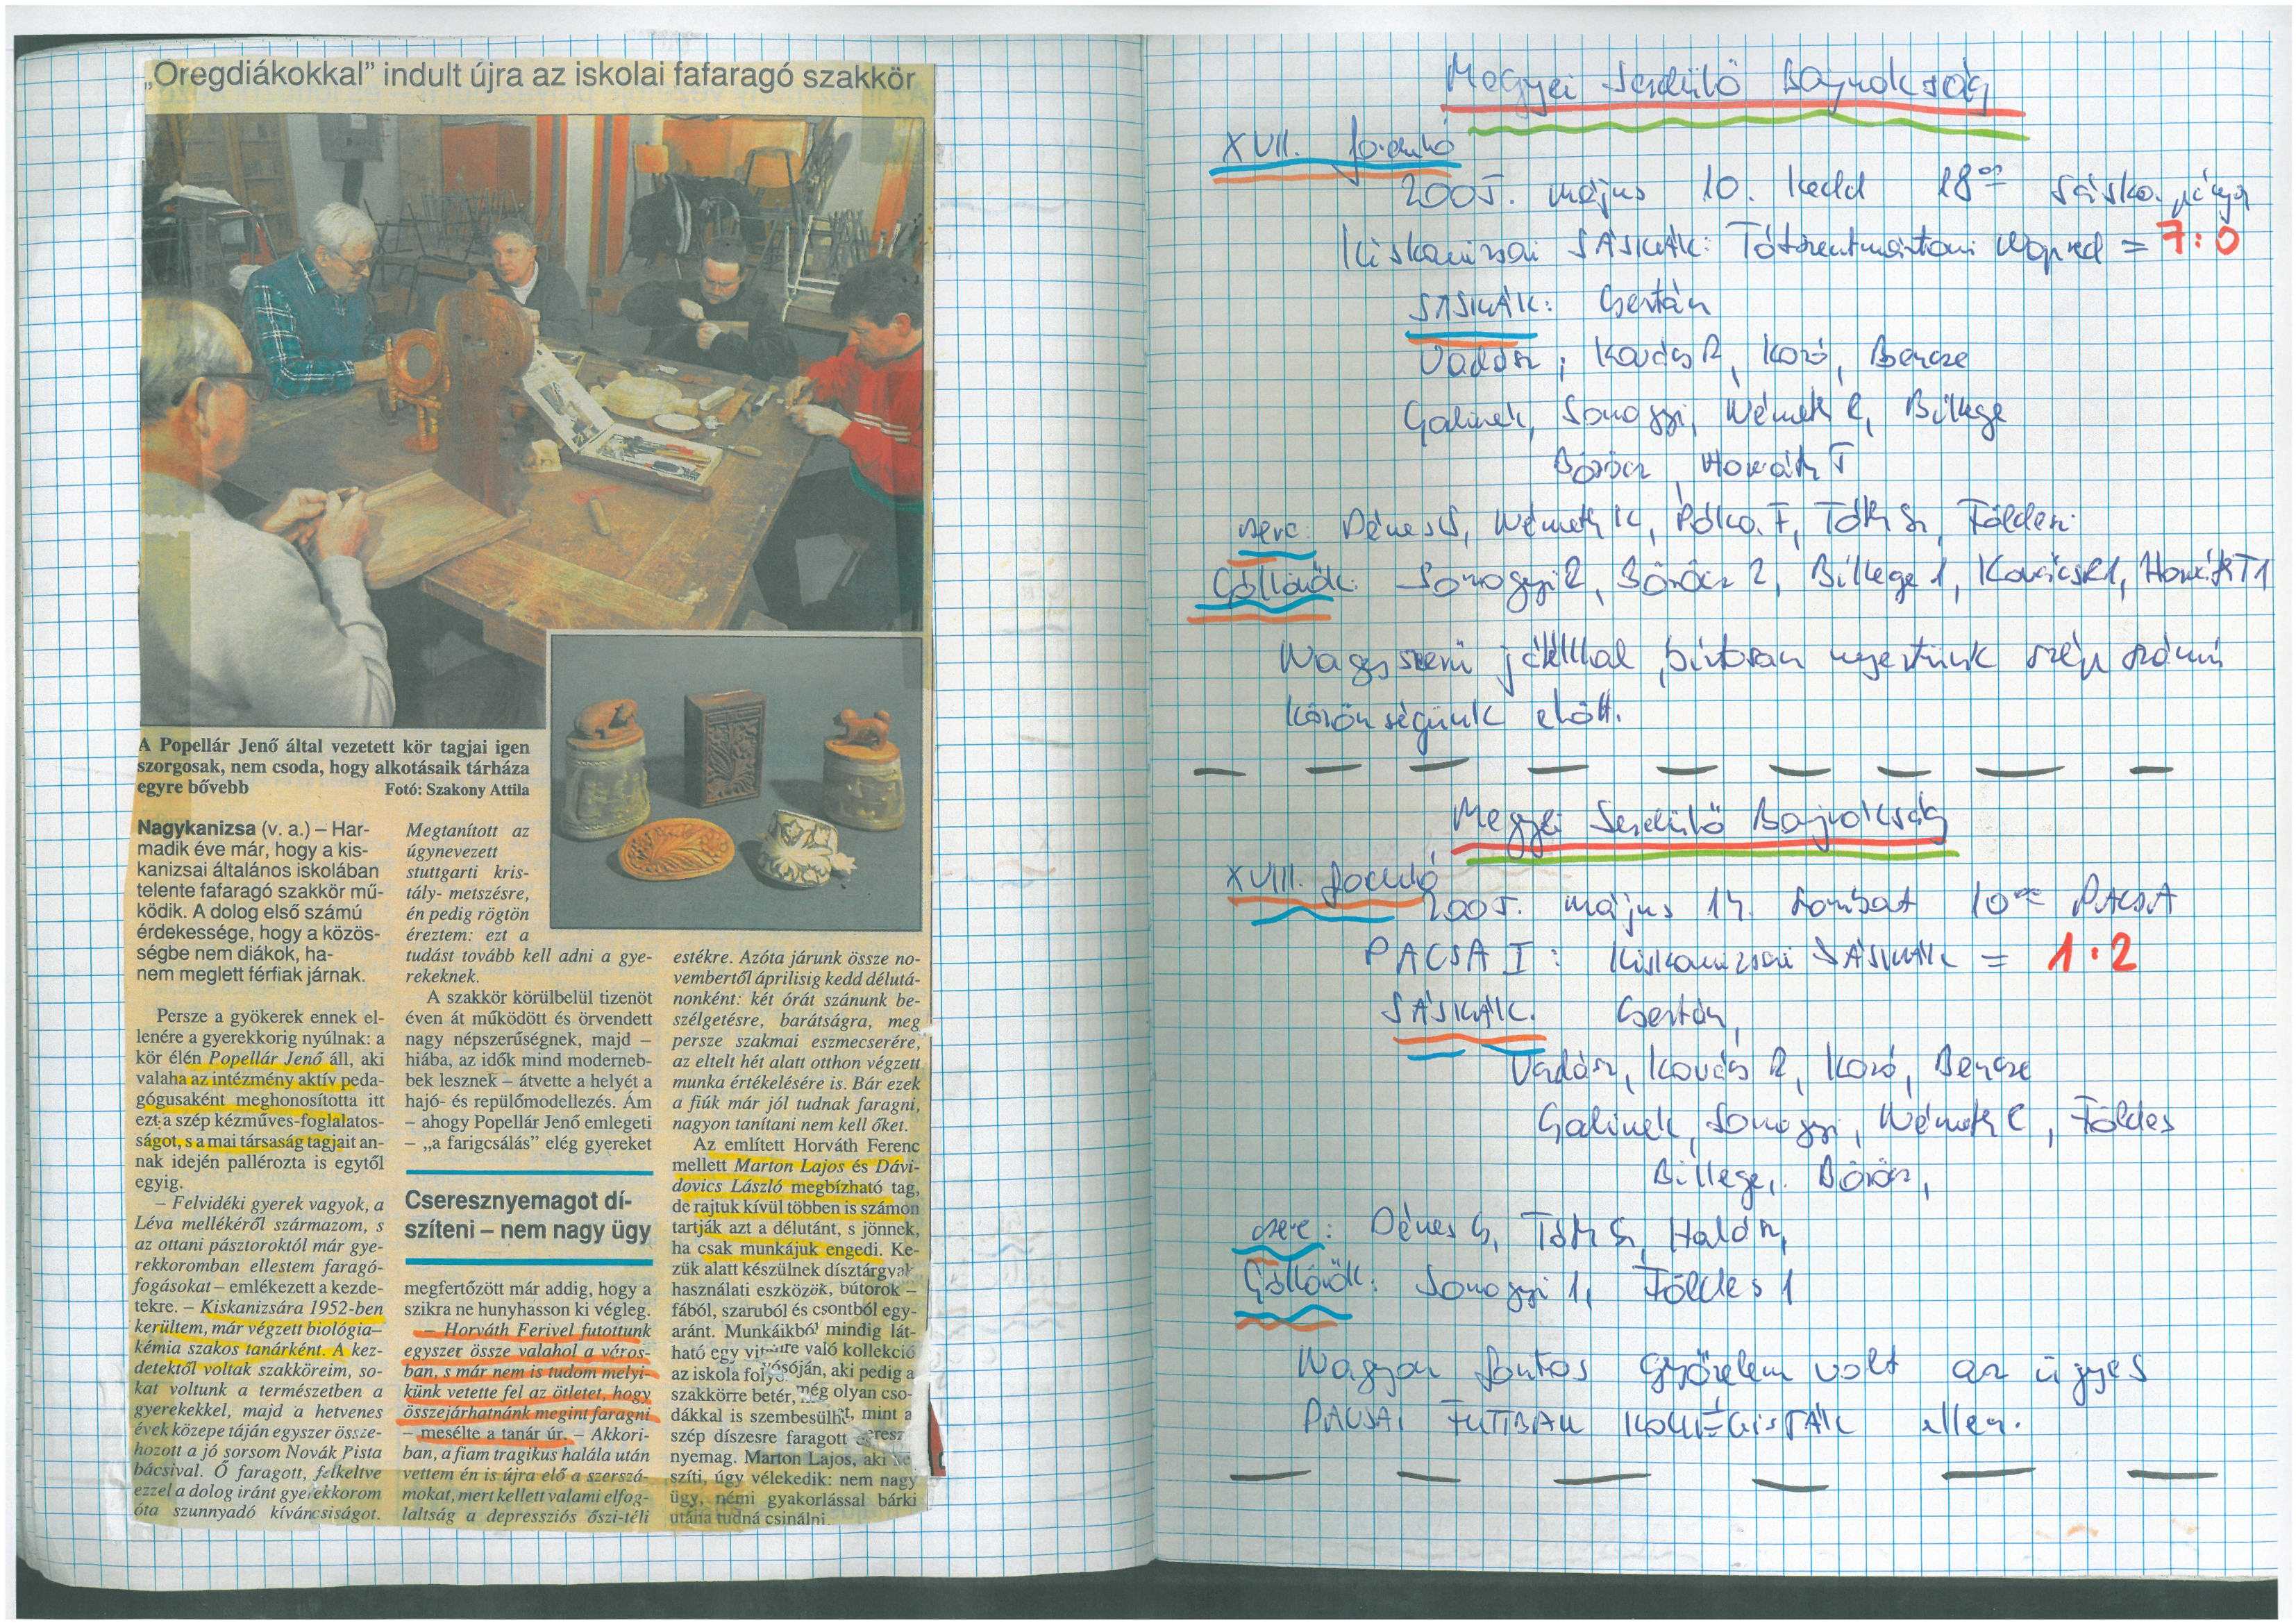 „Oregdiákokkal” indult újra az iskolai fafaragó szakkör
A Popellár Jenő által vezetett kör tagjai igen
szorgosak, nem csoda, hogy alkotásaik tárháza
egyre bővebb
Fotó: Szakony Attila
Nagykanizsa (v. a.) – Har-
madik éve már, hogy a kis-
kanizsai általános iskolában
telente fafaragó szakkör mű-
ködik. A dolog első számú
érdekessége, hogy a közös-
ségbe nem diákok, ha-
nem meglett férfiak járnak.
Persze a gyökerek ennek el-
lenére a gyerekkorig nyúlnak: a
kör élén Popellár Jenő áll, aki
valaha az intézmény aktív peda-
gógusaként meghonosította itt
ezt a szép kézműves-foglalatos-
ságot, s a mai társaság tagjait an-
nak idején pallérozta is egytől
egyig.
– Felvidéki gyerek vagyok, a
Léva mellékéről származom, s
az ottani pásztoroktól már gye-
rekkoromban ellestem faragó-
fogásokat – emlékezett a kezde-
tekre. – Kiskanizsára 1952-ben
kerültem, már végzett biológia–
kémia szakos tanárként. A kez-
detektől voltak szakköreim, so-
kat voltunk a természetben a
gyerekekkel, majd a hetvenes
évek közepe táján egyszer össze-
hozott a jó sorsom Novák Pista
bácsival. Ő faragott, felkeltve
ezzel a dolog iránt gyerekkorom
óta szunnyadó kíváncsiságot.
Megtanított az
úgynevezett
stuttgarti kris-
tály- metszésre,
én pedig rögtön
éreztem: ezt a
tudást tovább kell adni a gye-
rekeknek.
A szakkör körülbelül tizenöt
éven át működött és örvendett
nagy népszerűségnek, majd –
hiába, az idők mind moderneb-
bek lesznek – átvette a helyét a
hajó- és repülőmodellezés. Ám
– ahogy Popellár Jenő emlegeti
– „a farigcsálás” elég gyereket
Cseresznyemagot dí-
szíteni – nem nagy ügy
megfertőzött már addig, hogy a
szikra ne hunyhasson ki végleg.
– Horváth Ferivel futottunk
egyszer össze valahol a város-
ban, s már nem is tudom melyi-
künk vetette fel az ötletet, hogy
összejárhatnánk megint faragni
– mesélte a tanár úr. – Akkori-
ban, a fiam tragikus halála után
vettem én is újra elő a szerszá-
mokat, mert kellett valami elfog-
laltság a depressziós őszi-téli
estékre. Azóta járunk össze no-
vembertől áprilisig kedd délutá-
nonként: két órát szánunk be-
szélgetésre, barátságra, meg
persze szakmai eszmecserére,
az eltelt hét alatt otthon végzett
munka értékelésére is. Bár ezek
a fiúk már jól tudnak faragni,
nagyon tanítani nem kell őket.
Az említett Horváth Ferenc
mellett Marton Lajos és Dávi-
dovics László megbízható tag,
de rajtuk kívül többen is számon
tartják azt a délutánt, s jönnek,
ha csak munkájuk engedi. Ke-
zük alatt készülnek dísztárgyak
használati eszközök, bútorok –
fából, szaruból és csontból egy-
aránt. Munkáikból mindig lát-
ható egy való kollekció
az iskola folyosóján, aki pedig a
szakkörre betér, még olyan cso-
dákkal is szembesülhet, mint a
szép díszesre faragott
nyemag. Marton Lajos, aki
szíti, úgy vélekedik: nem nagy
ügy, némi gyakorlással bárki
utána tudná csinálni.
Megyei Serdülő Bajnokság
XVII. forduló
2005. május 10. kedd 18⁰⁰ Sáska pálya
Kiskanizsai SÁSKÁK: Tótszentmártoni = 7:0
SÁSKÁK: Csertán
Vadász, Kovács R, Kozó, Bencze
Galinek, Somogyi, Németh R, Billege
Böröcz, Horváth T
csere: Dénes G, Németh K, Pólka F, Tóth Sz, Földesi
Góllövők: Somogyi 2, Böröcz 2, Billege 1, Kovács R 1, Horváth T 1
Nagyszerű játékkal, biztosan nyertünk szép számú
közönségünk előtt.
Megyei Serdülő Bajnokság
XVIII. forduló
2005. május 14. szombat 10⁰⁰ PACSA
PACSA I : Kiskanizsai SÁSKÁK = 1:2
SÁSKÁK: Csertán,
Vadász, Kovács R, Kozó, Bencze
Galinek, Somogyi, Németh R, Földes
Billege, Böröcz,
csere: Dénes G, Tóth Sz, Halász,
Góllövők: Somogyi 1, Földes 1
Nagyon fontos győzelem volt az ügyes
PACSAI FUTBALL KOLLÉGISTÁK ellen.